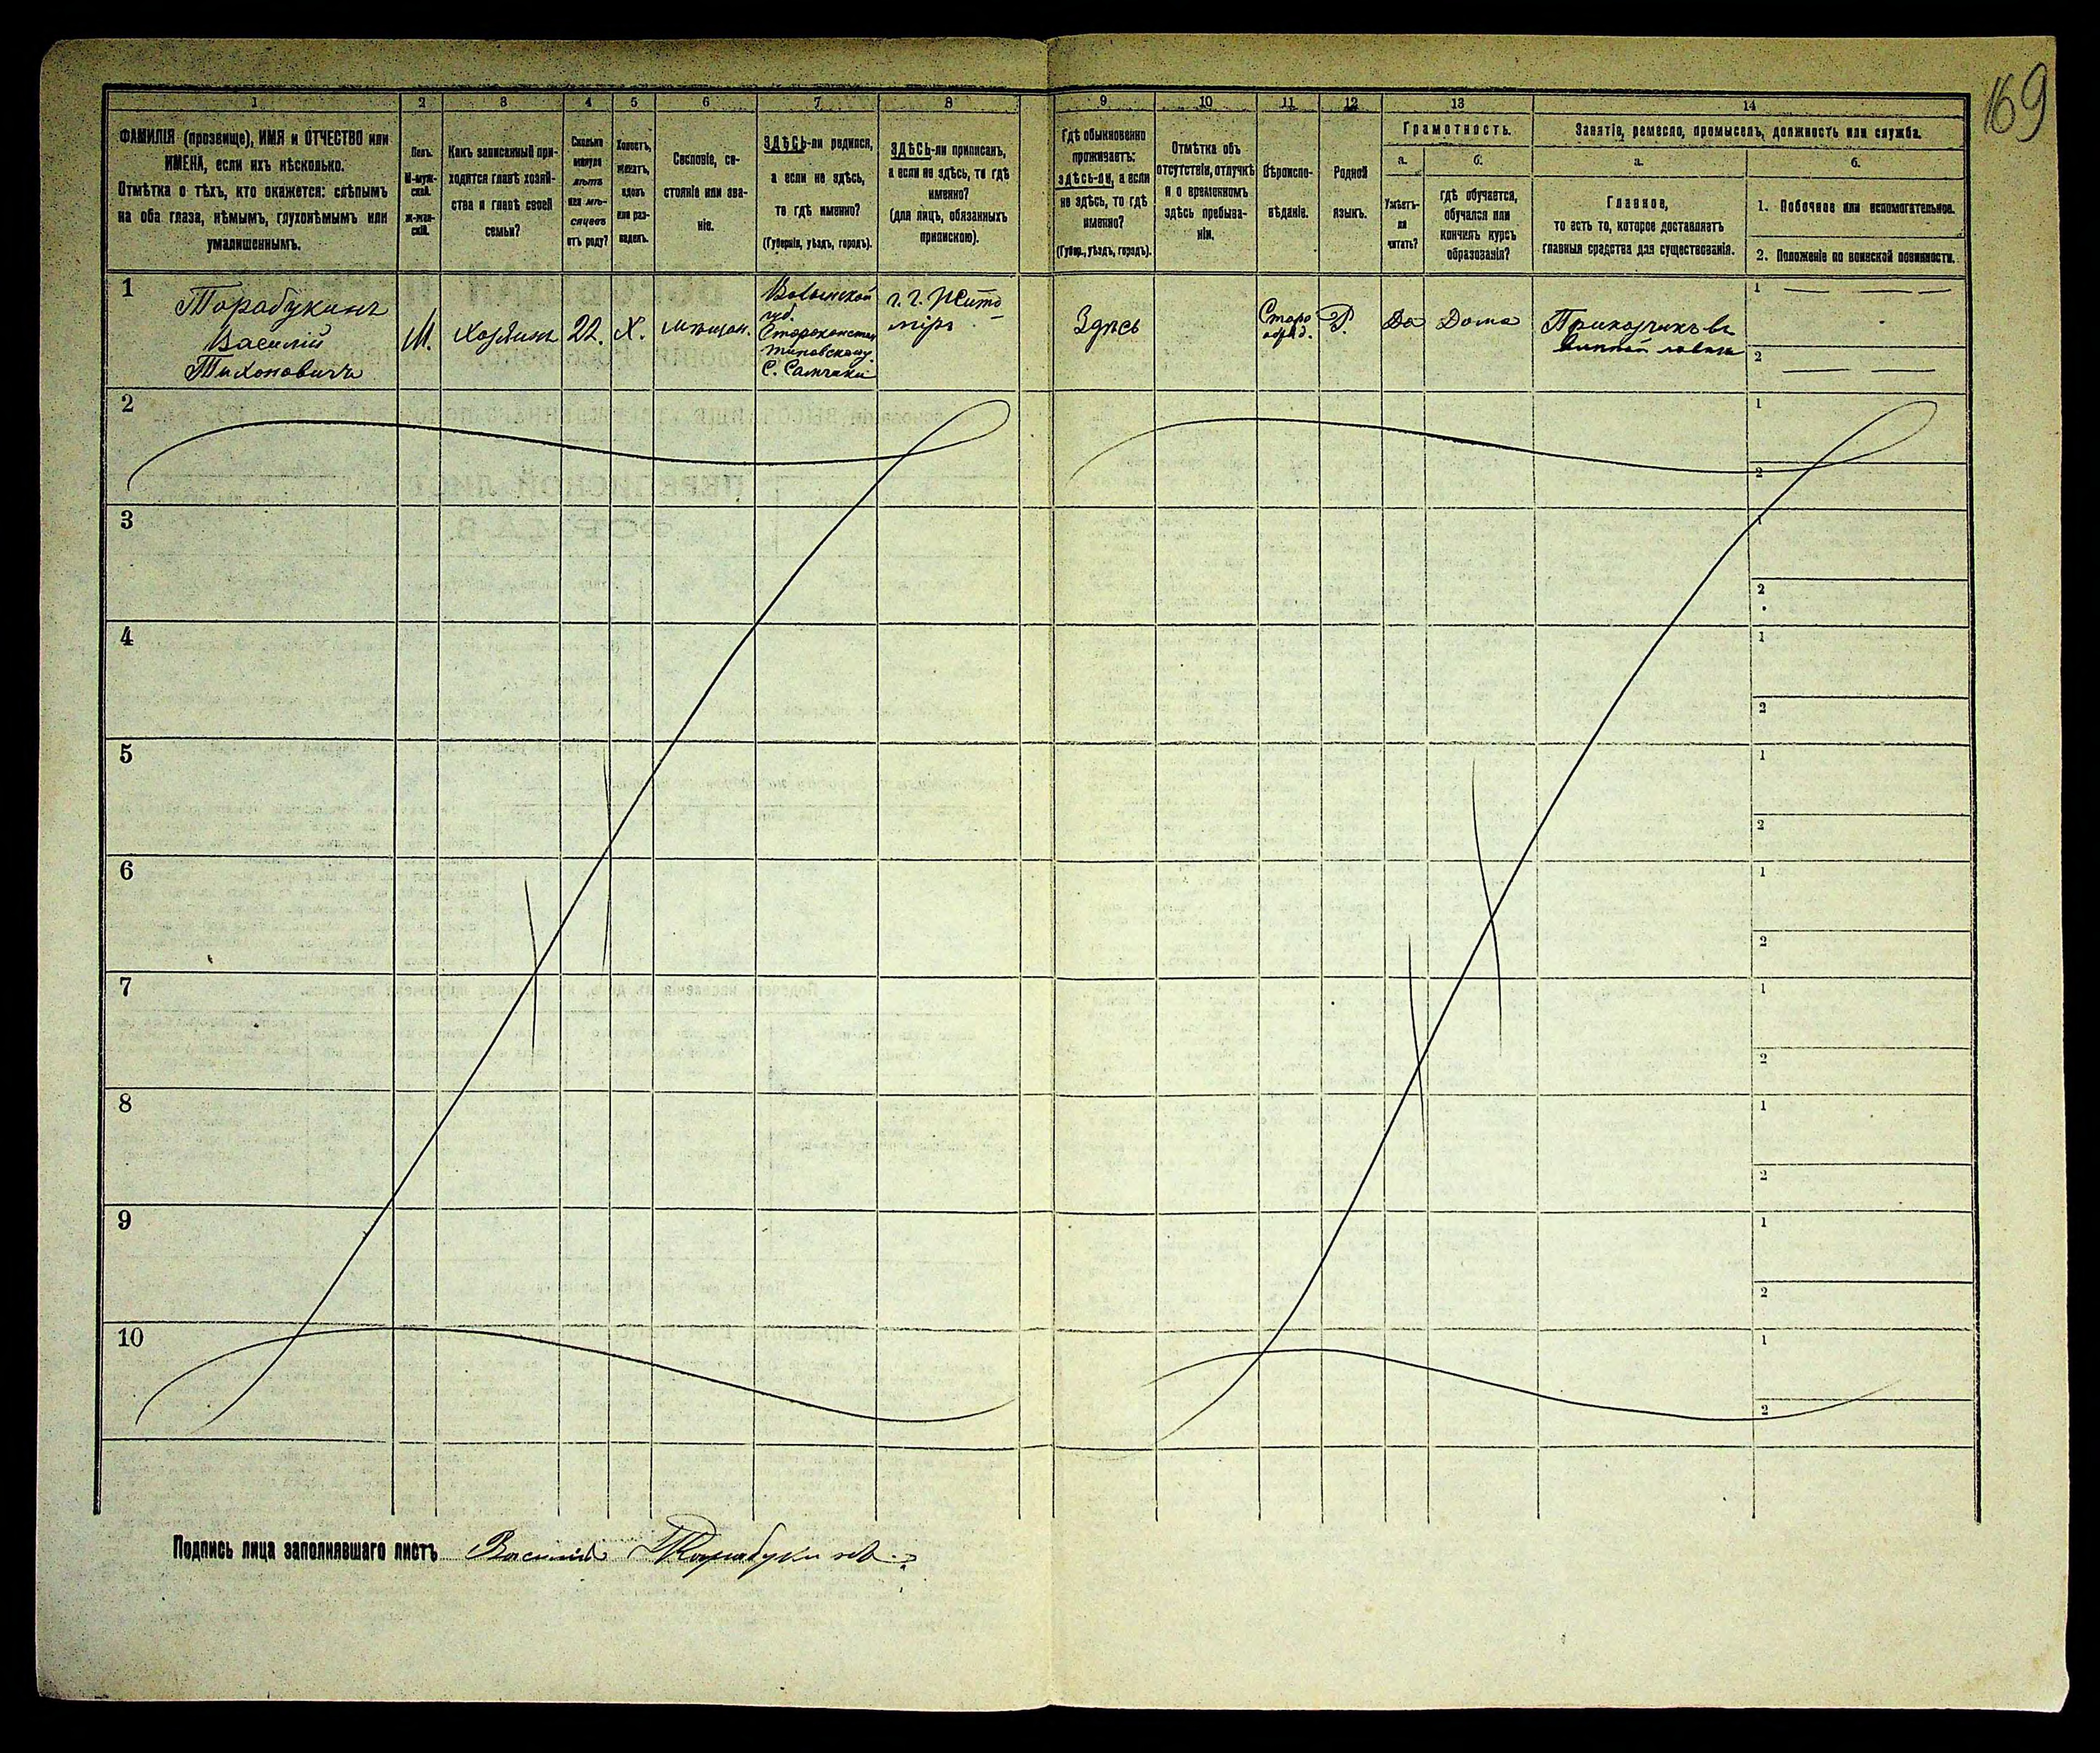 169
1 2 3 4 5 6 7 8 9 10 11 12 13 14
ФАМИЛІЯ (прозвище), ИМЯ и ОТЧЕСТВО или
ИМЕНА, если ихъ нѣсколько.
Отмѣтка о тѣхъ, кто окажется: слѣпымъ
на оба глаза, нѣмымъ, глухонѣмымъ или
умалишеннымъ.
Полъ.
М-муж-
ской.
Ж-жен-
скій.
Какъ записанный при-
ходится главѣ хозяй-
ства и главѣ своей
семьи?
Сколько
минуло
лѣтъ
или мѣ-
сяцевъ
отъ роду?
Холостъ,
женатъ,
вдовъ
или раз-
веденъ.
Сословіе, со-
стояніе или зва-
ніе.
ЗДѢСЬ-ли родился,
а если не здѣсь,
то гдѣ именно?
(Губернія, уѣздъ, городъ).
ЗДѢСЬ-ли приписанъ,
а если не здѣсь, то гдѣ
именно?
(для лицъ, обязанныхъ
припискою).
Гдѣ обыкновенно
проживаетъ:
здѣсь-ли, а если
не здѣсь, то гдѣ
именно?
(Губер., уѣздъ, городъ).
Отмѣтка объ
отсутствіи, отлучкѣ
и о временномъ
здѣсь пребыва-
ніи.
Вѣроиспо-
вѣданіе.
Родной
языкъ.
Грамотность.
а.
Умѣетъ-
ли
читать?
б.
гдѣ обучается,
обучался или
кончилъ курсъ
образованія?
Занятіе, ремесло, промыселъ, должность или служба.
а.
Главное,
то есть то, которое доставляетъ
главныя средства для существованія.
б.
1. Побочное или вспомогательное.
2. Положеніе по воинской повинности.
1
Тарабукинъ
Василій
Тихоновичъ
М.
Хозяинъ
22.
Х.
мѣщан.
Волынской
губ.
Староконстан
тиновскому.
С. Самчики
г. г. Жито
міръ
Здѣсь
Старо
обряд.
Р.
Да
Дома
Прикащикъ въ
винной лавкѣ
1
2
2
1
2
3
1
2
4
1
2
5
1
2
6
1
2
7
1
2
8
1
2
9
1
2
10
1
2
Подпись лица заполнявшаго листъ Василій Тарабукинъ